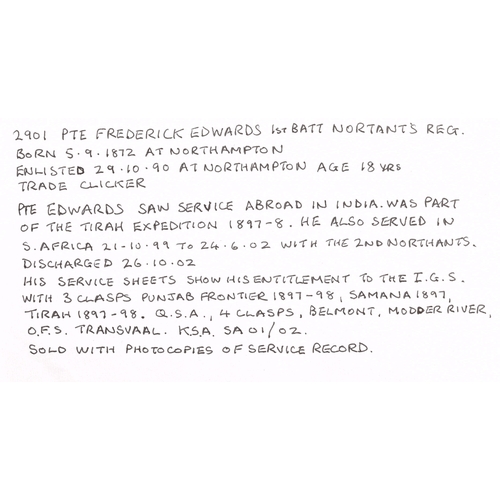 2901 PTE FREDERICK EDWARDS 1st BATT NORTANT'S REG.
BORN 5.9.1872 AT NORTHAMPTON
ENLISTED 29.10.90 AT NORTHAMPTON AGE 18 YRS
TRADE CLICKER
PTE EDWARDS SAW SERVICE ABROAD IN INDIA. WAS PART
OF THE TIRAH EXPEDITION 1897-8. HE ALSO SERVED IN
S. AFRICA 21-10.99 TO 24.6.02 WITH THE 2ND NORTHANTS.
DISCHARGED 26.10.02
HIS SERVICE SHEETS SHOW HIS ENTITLEMENT TO THE I.G.S.
WITH 3 CLASPS PUNJAB FRONTIER 1897-98, SAMANA 1897,
TIRAH 1897-98. Q.S.A., 4 CLASPS, BELMONT, MODDER RIVER,
O.F.S. TRANSVAAL. K.S.A. SA 01/02.
SOLD WITH PHOTOCOPIES OF SERVICE RECORD.